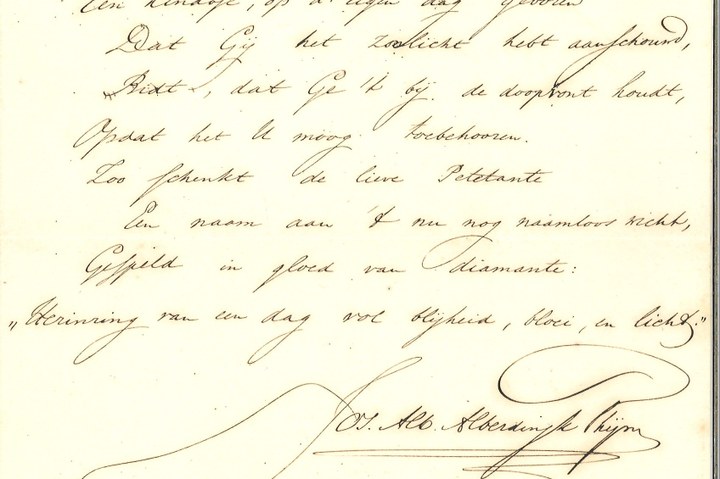 Een kindtje, op d' eigen dag geboren
Dat Gij het zonlicht hebt aanschouwd,
Bidt, dat Ge 't bij de doopvont houdt,
Opdat het U moog toebehooren.
Zoo schenkt de lieve Petetante
Een naam aan 't nu nog naamloos wicht,
Gespeld in gloed van diamante:
„Herinring van een dag vol blijheid, bloei, en licht."
Jos. Alb. Alberdingk Thijm